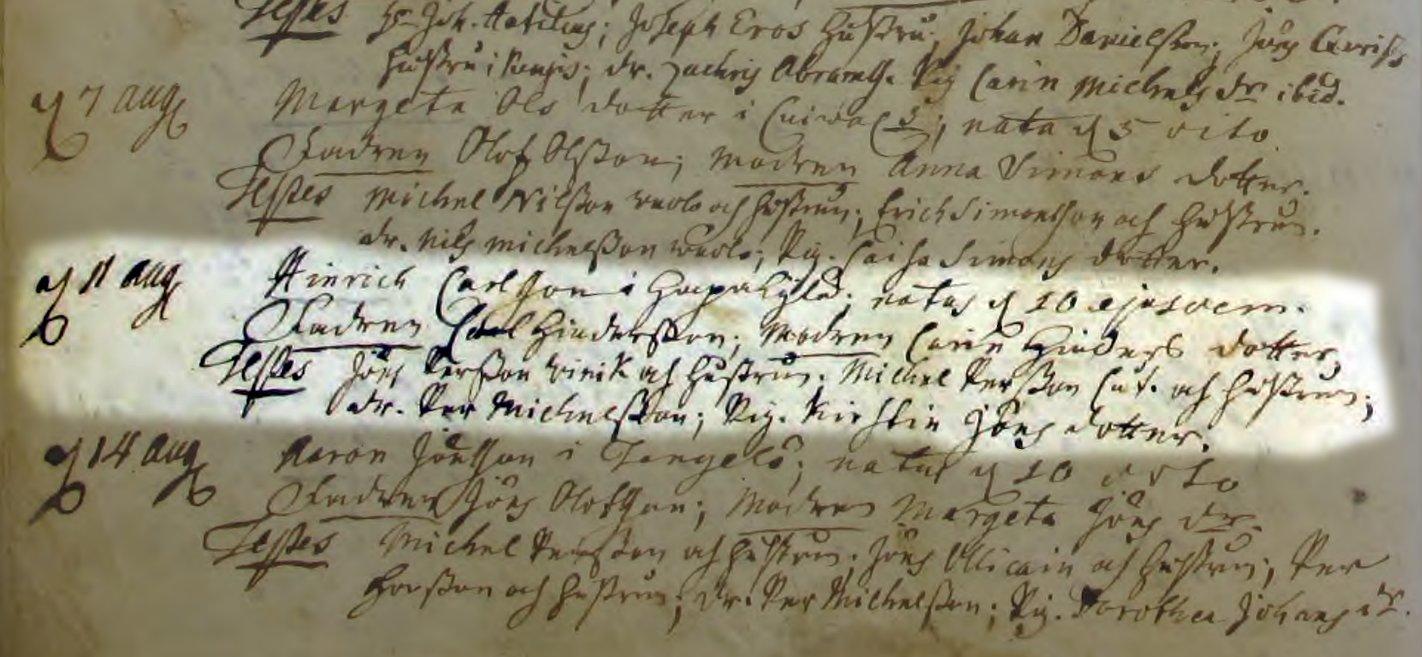 Testes Joh. Joseph Eros Hustru; Johan Danielsson; Jöns
Hustru i dr. Zachris Abramss. Pig. Carin Michels dr ibid.
d 7 aug Margeta Ols dotter i nata d 5 dito
Fadren Olof Olsson; Modren Anna Simons dotter.
Testes Michel Nilsson och hustrun; Erich Simonsson och hustrun.
dr. Nils Michelsson Pig. Caisa Simons dotter.
d 11 aug Hinrich Carlsson i natus d 10 ejusdem.
Fadren Carl Hindersson; Modren Carin Hinders dotter,
Testes Jöns Persson och hustrun. Michel Persson och hustrun;
dr. Per Michelsson; Pig. Kirstin Jöns dotter.
d 14 aug Aaron Jönsson i natus d 10 dito
Fadren Jöns Olofsson; Modren Margeta Jöns dr.
Testes Michel Persson och hustrun; Jöns och hustrun; Per
och hustrun; dr. Per Michelsson; Pig. Dorothea Johans dr.